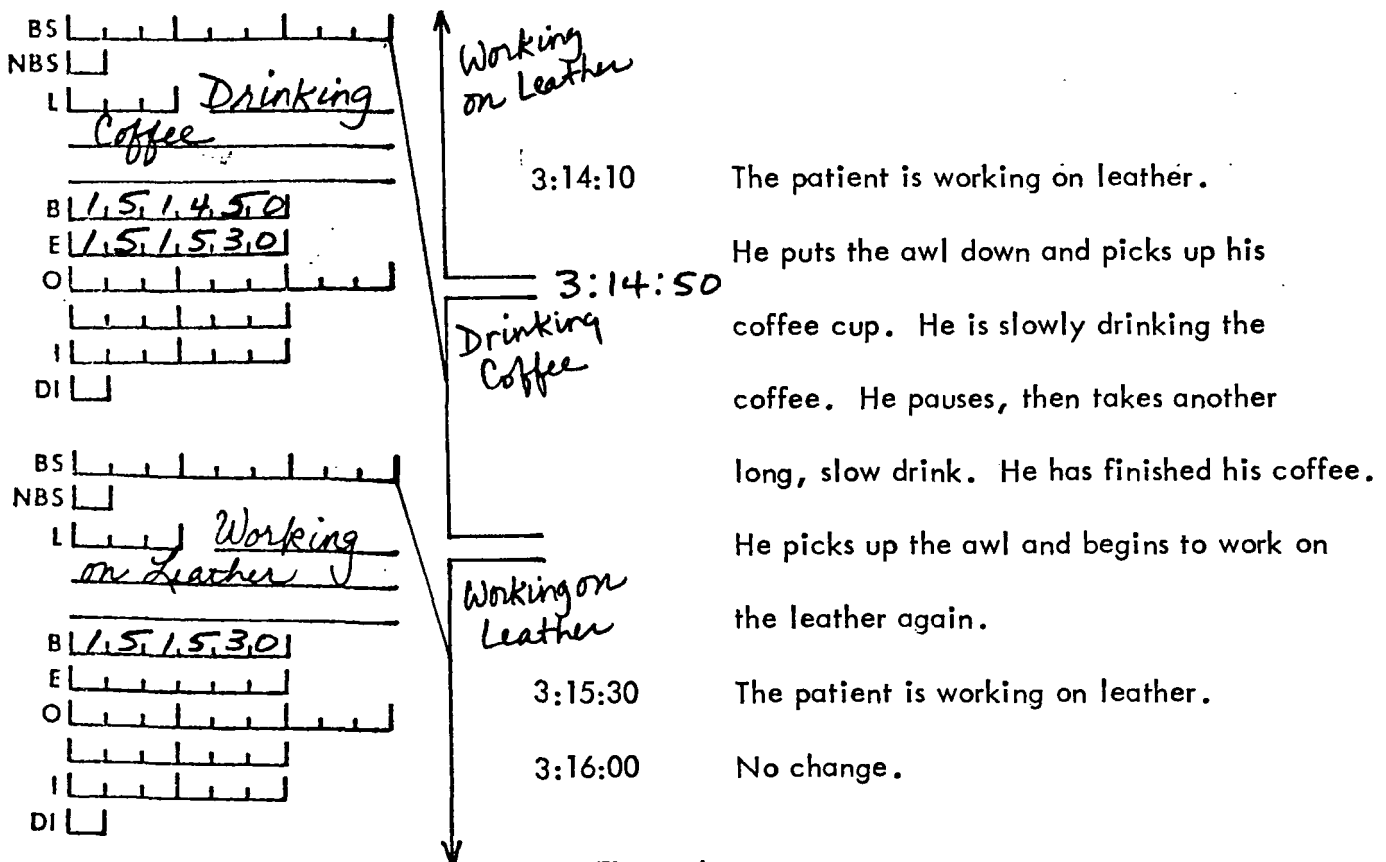 BS
NBS
L Drinking
Coffee
B 1 5 1 4 5 0
E 1 5 1 5 3 0
O
I
DI
BS
NBS
L Working
on Leather
B 1 5 1 5 3 0
E
O
I
DI
Working
on Leather
3:14:50
Drinking
Coffee
Working on
Leather
3:14:10 The patient is working on leather.
He puts the awl down and picks up his
coffee cup. He is slowly drinking the
coffee. He pauses, then takes another
long, slow drink. He has finished his coffee.
He picks up the awl and begins to work on
the leather again.
3:15:30 The patient is working on leather.
3:16:00 No change.